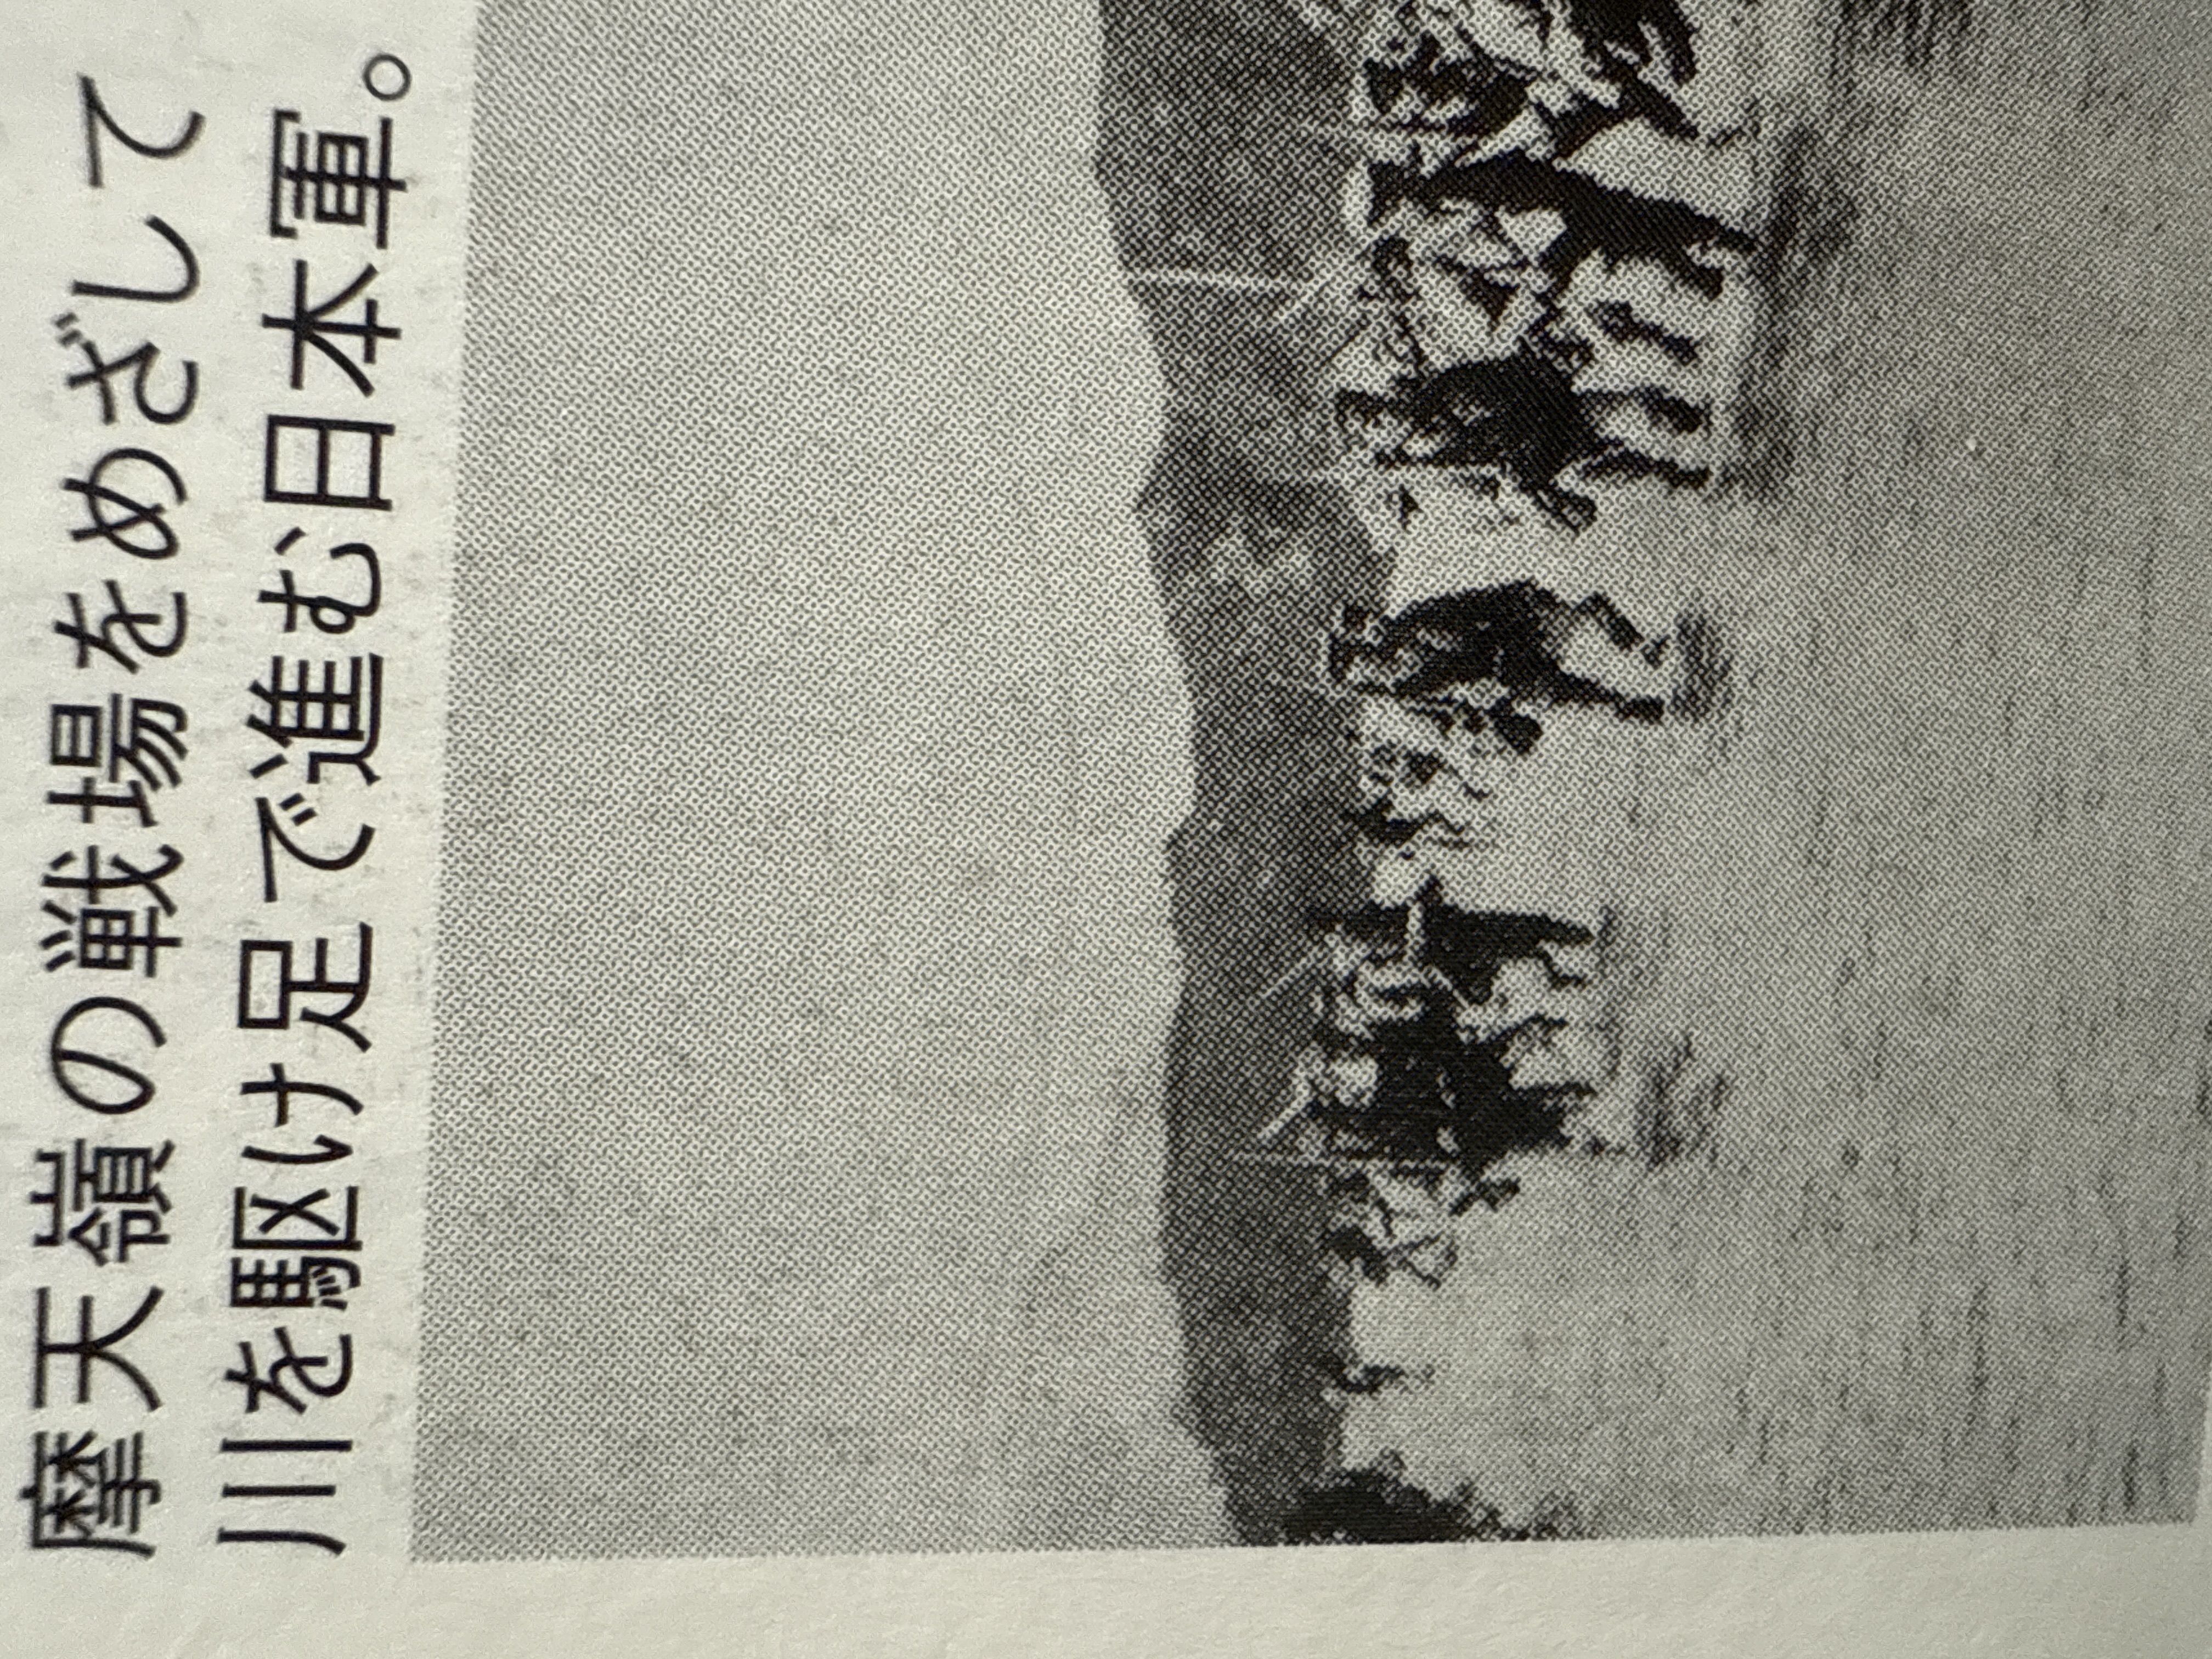 摩天嶺の戦場をめざして
川を駆け足で進む日本軍。